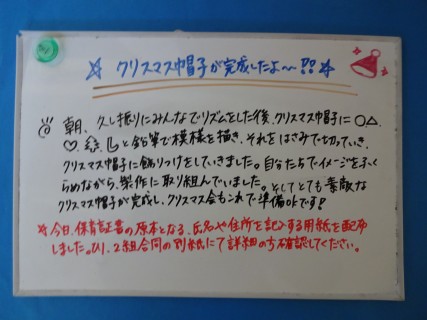 ☆ クリスマス帽子が完成したよ〜!! ☆
朝、久し振りにみんなでリズムをした後、クリスマス帽子に○△
♡ などと鉛筆で模様を描き、それをはさみで切っていき、
クリスマス帽子に飾りつけをしていきました。自分たちでイメージをふく
らめながら、製作に取り組んでいました。そしてとても素敵な
クリスマス帽子が完成し、クリスマス会もこれで準備OKです!
☆今日、保育証書の原本となる、氏名や住所を記入する用紙を配布
しました。ひ1、2組合同の別紙にて詳細の方確認してください。